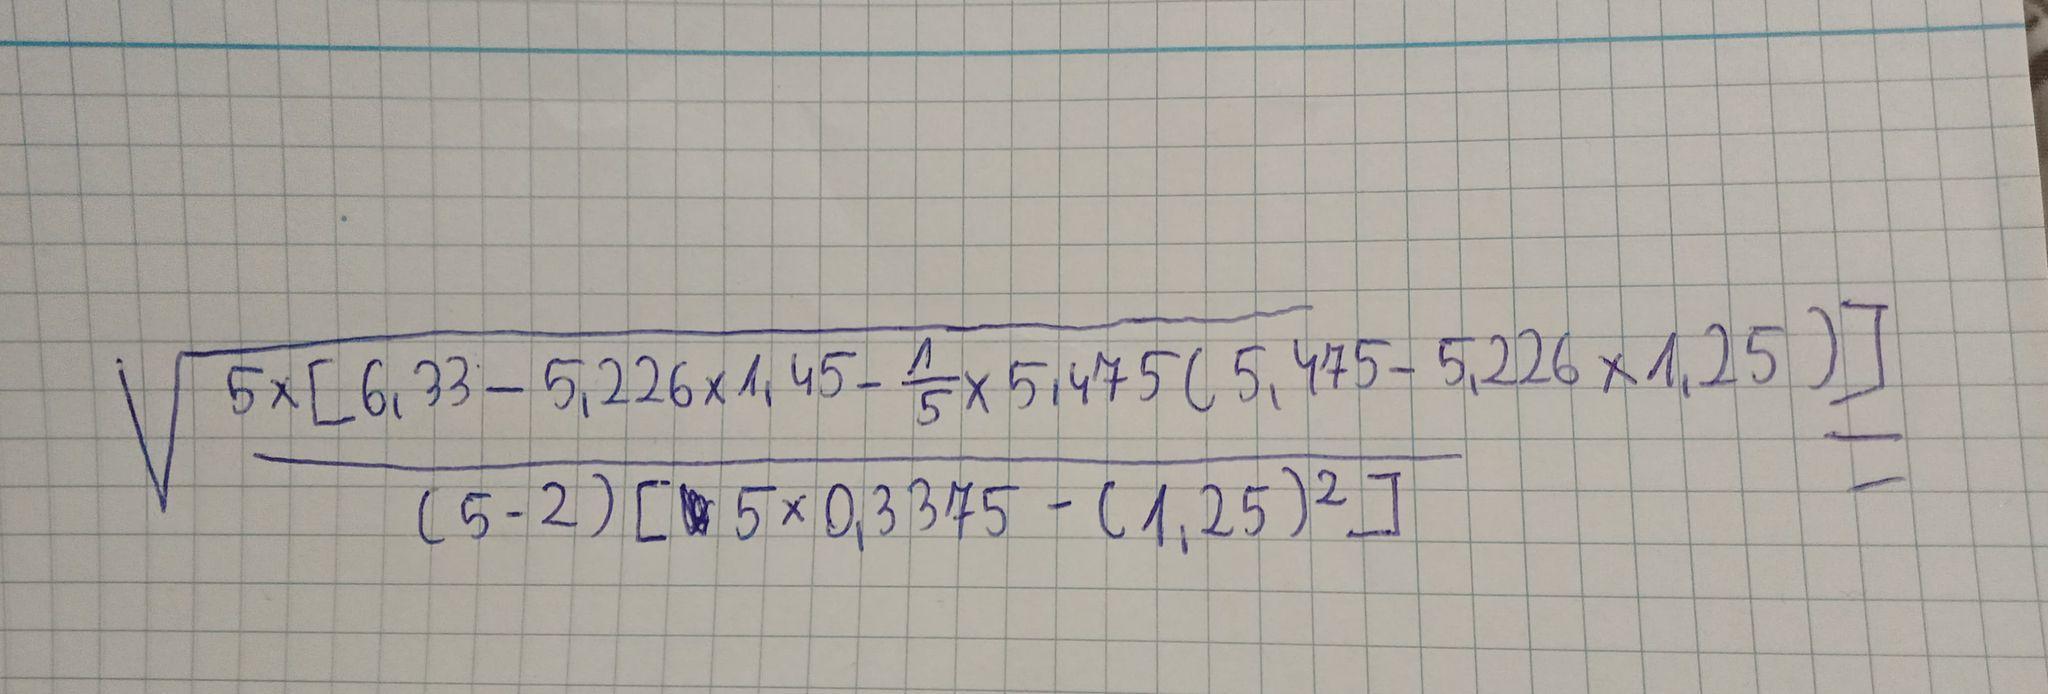 √5×[6,33-5,226×1,45-1/5×5,475(5,475-5,226×1,25)] =
(5-2)[5×0,3375-(1,25)²]